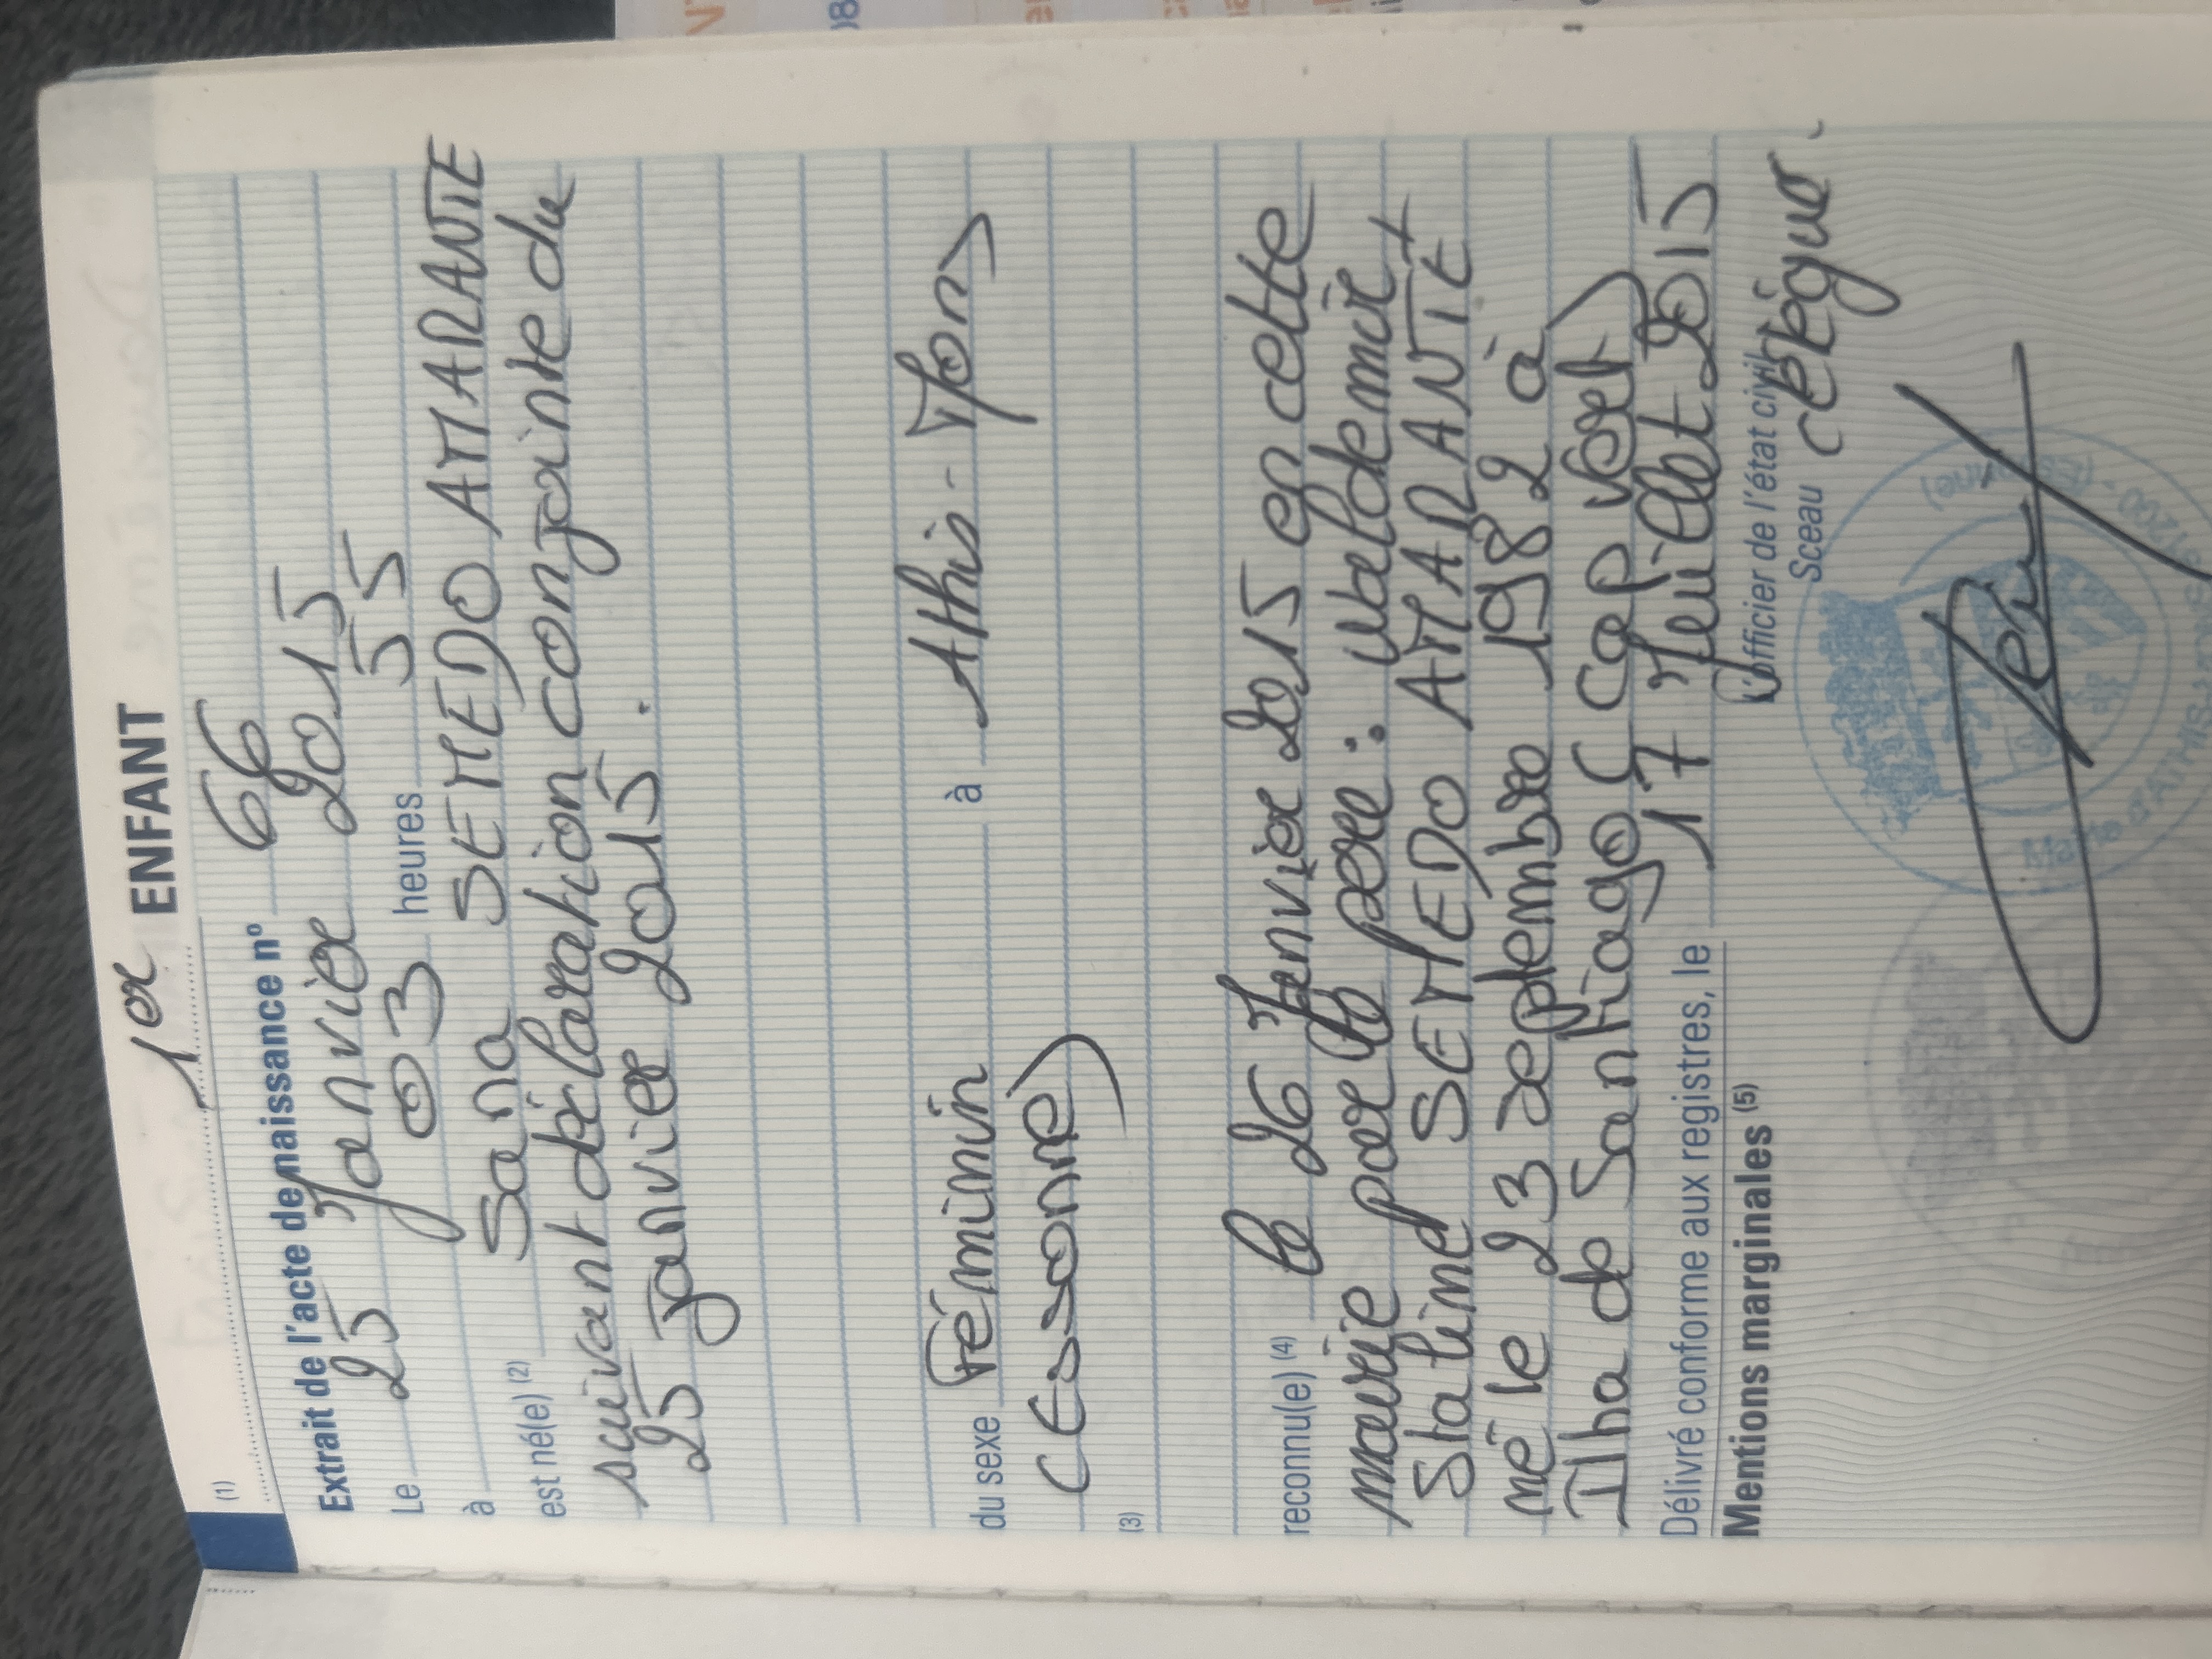 1er ENFANT
(1)
Extrait de l'acte de naissance nº 66
Le 25 Janvier 2015
à 03 heures 55
est né(e) (2) Sana SEMEDO AMARANTE
suivant déclaration conjointe du
25 janvier 2015.
du sexe Féminin à Athis-Mons
(Essonne)
(3)
reconnu(e) (4) le 26 Janvier 2015 en cette
mairie par le père :
Staline SEMEDO AMARANTE
né le 23 septembre 1982 à
Ilha de Santiago (Cap vert)
Délivré conforme aux registres, le 17 Juillet 2015
Mentions marginales (5)
L'officier de l'état civil
Sceau délégué
Mairie d'ATHIS-MONS